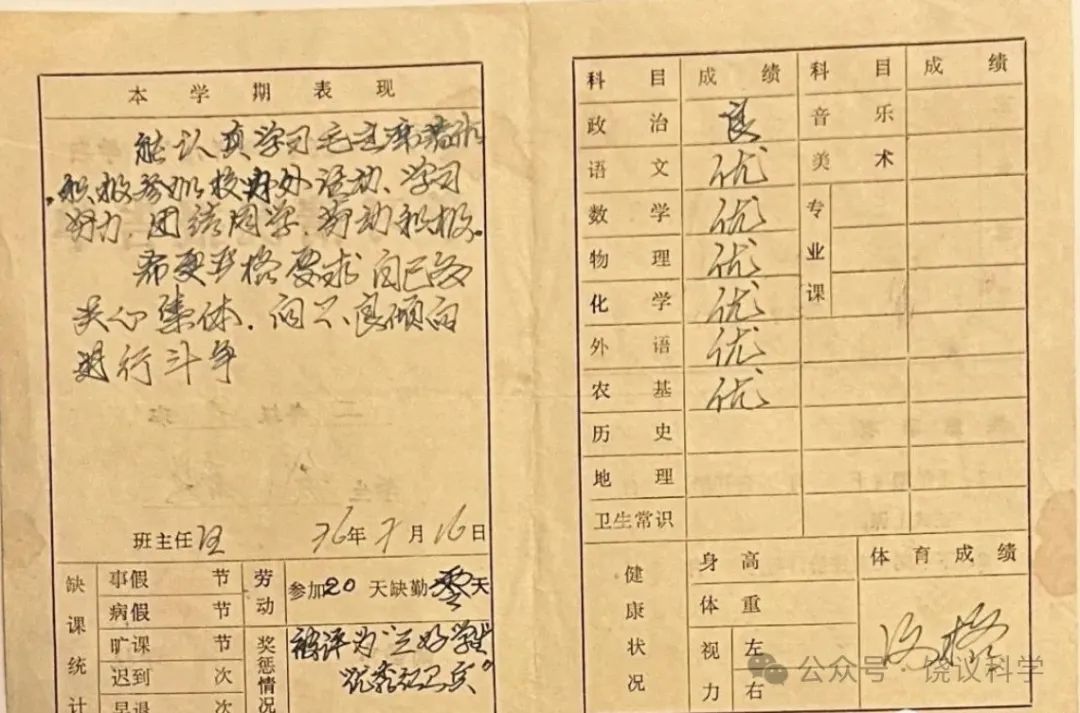 本学期表现
能认真学习毛主席著作
积极参加校办外活动、学习
努力，团结同学，劳动积极。
希更严格要求自己多
关心集体，向不良倾向
进行斗争
班主任 76年7月16日
缺课统计
事假 节
病假 节
旷课 节
迟到 次
早退 次
劳动
参加20天缺勤零天
奖惩情况
被评为“三好学生
优秀红卫兵”
科目 成绩 科目 成绩
政治 良 音乐
语文 优 美术
数学 优 专业课
物理 优
化学 优
外语 优
农基 优
历史
地理
卫生常识
健康状况
身高
体重
视力 左
右
体育成绩
及格
公众号·饶议科学